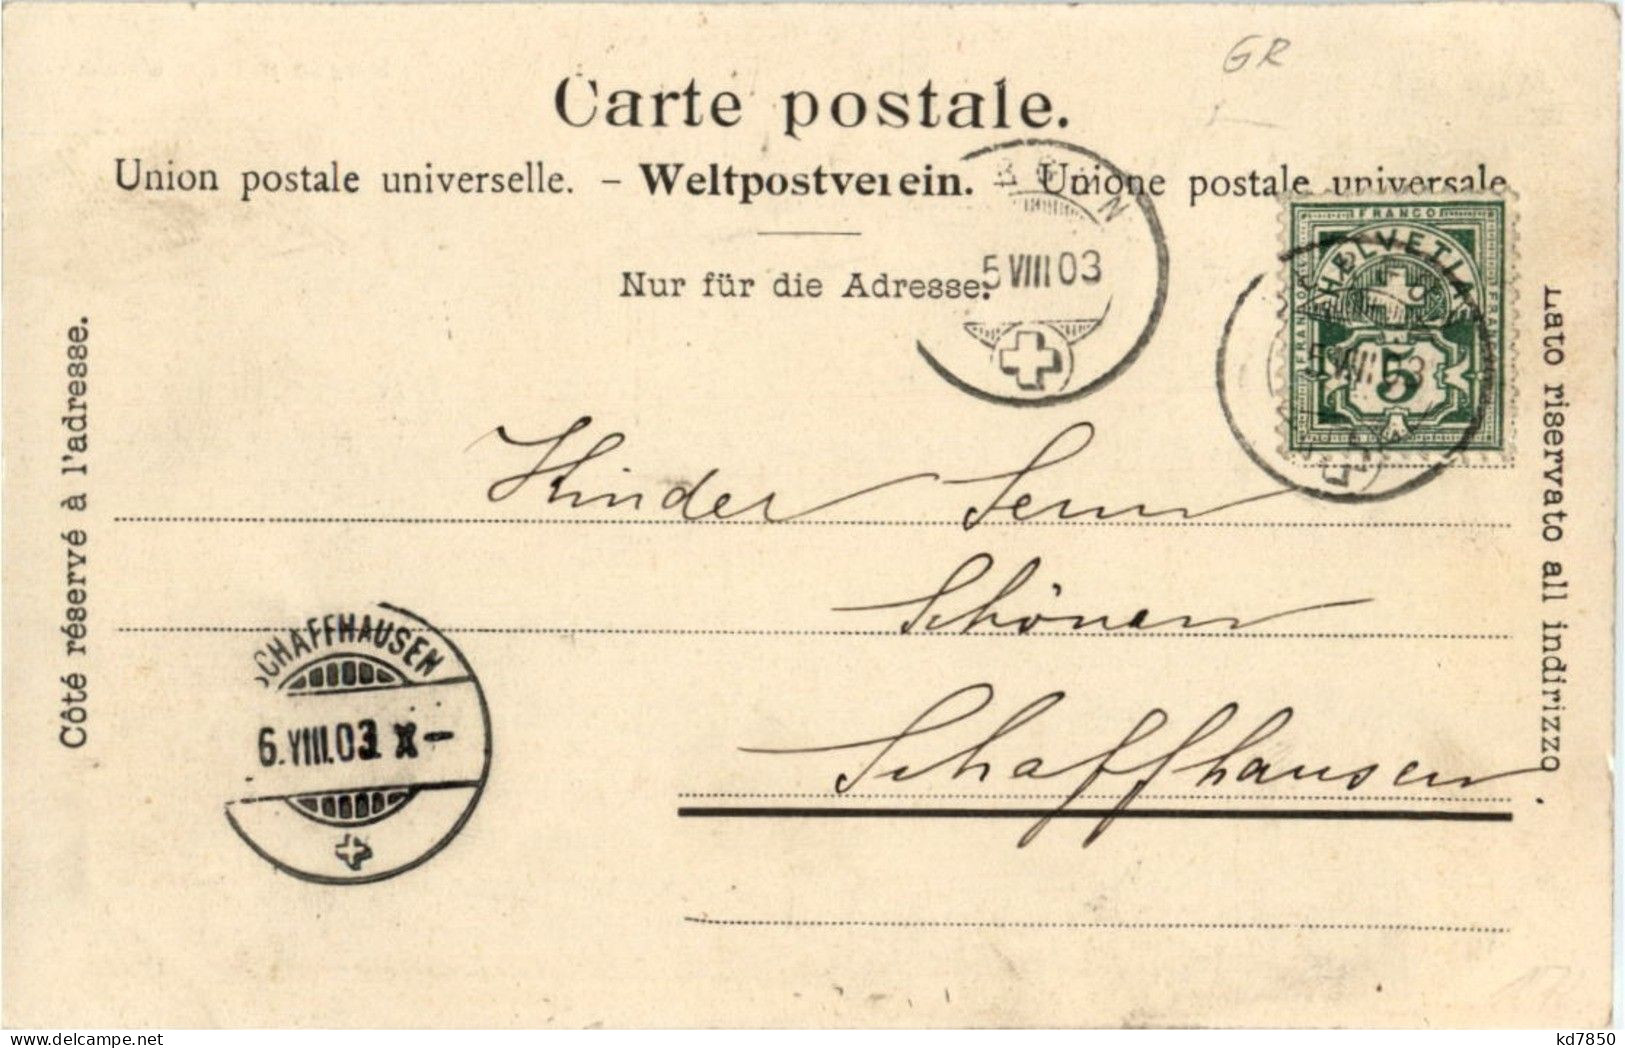 GR
Carte postale.
Union postale universelle. – Weltpostverein. – Unione postale universale
Nur für die Adresse.
5 VIII 03
FRANCO
HELVETIA
FRANCO
FRANCO
5
5 VIII 03
Côté réservé à l'adresse.
Lato riservato all indirizzo
Kinder Senn
Schönen
Schaffhausen.
SCHAFFHAUSEN
6.VIII.03. X–
kd7850